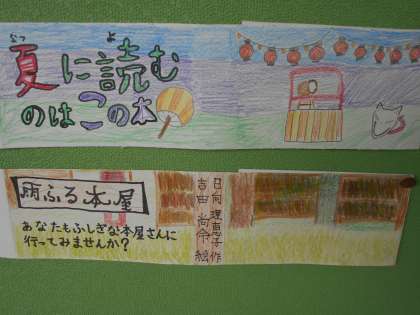 なつ よ
夏に読む
のはこの本
雨ふる本屋
あなたもふしぎな本屋さんに
行ってみませんか?
日向理恵子 作
吉田尚令 絵